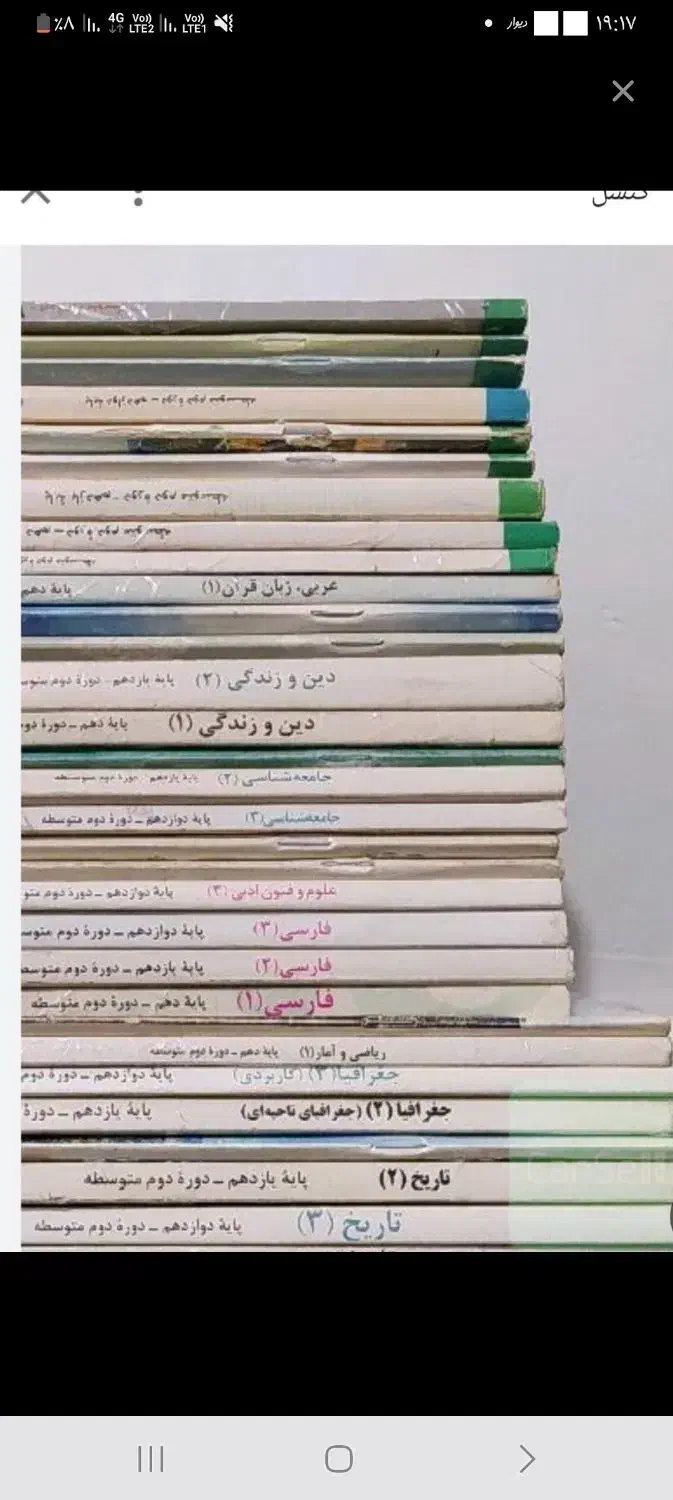 ۱۹:۱۷ دیوار Vo)) LTE1 Vo)) LTE2 4G ٪۸
کنسل
متوسطه دوم دورهٔ – دوازدهم پایهٔ
متوسطه دوم دورهٔ - یازدهم پایهٔ
متوسطه دوم دورهٔ – دهم
متوسطه دوم
عربی، زبان قرآن (۱) پایهٔ دهم
دین و زندگی (۲) پایهٔ یازدهم - دورهٔ دوم
دین و زندگی (۱) پایهٔ دهم – دورهٔ
جامعه‌شناسی (۲) پایهٔ یازدهم - دورهٔ دوم متوسطه
جامعه‌شناسی (۳) پایهٔ دوازدهم – دورهٔ دوم متوسطه
علوم و فنون ادبی (۳) پایهٔ دوازدهم – دورهٔ دوم
فارسی (۳) پایهٔ دوازدهم – دورهٔ دوم
فارسی (۲) پایهٔ یازدهم – دورهٔ دوم
فارسی (۱) پایهٔ دهم – دورهٔ دوم متوسطه
ریاضی و آمار (۱) پایهٔ دهم – دورهٔ دوم متوسطه
جغرافیا (۳) (کاربردی) پایهٔ دوازدهم – دورهٔ دوم
جغرافیا (۲) (جغرافیای ناحیه‌ای) پایهٔ یازدهم – دورهٔ
تاریخ (۲) پایهٔ یازدهم – دورهٔ دوم متوسطه
تاریخ (۳) پایهٔ دوازدهم – دورهٔ دوم متوسطه